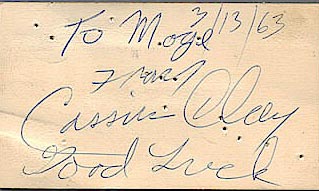 To Moge 3/13/63
From
Cassius Clay
Good Luck